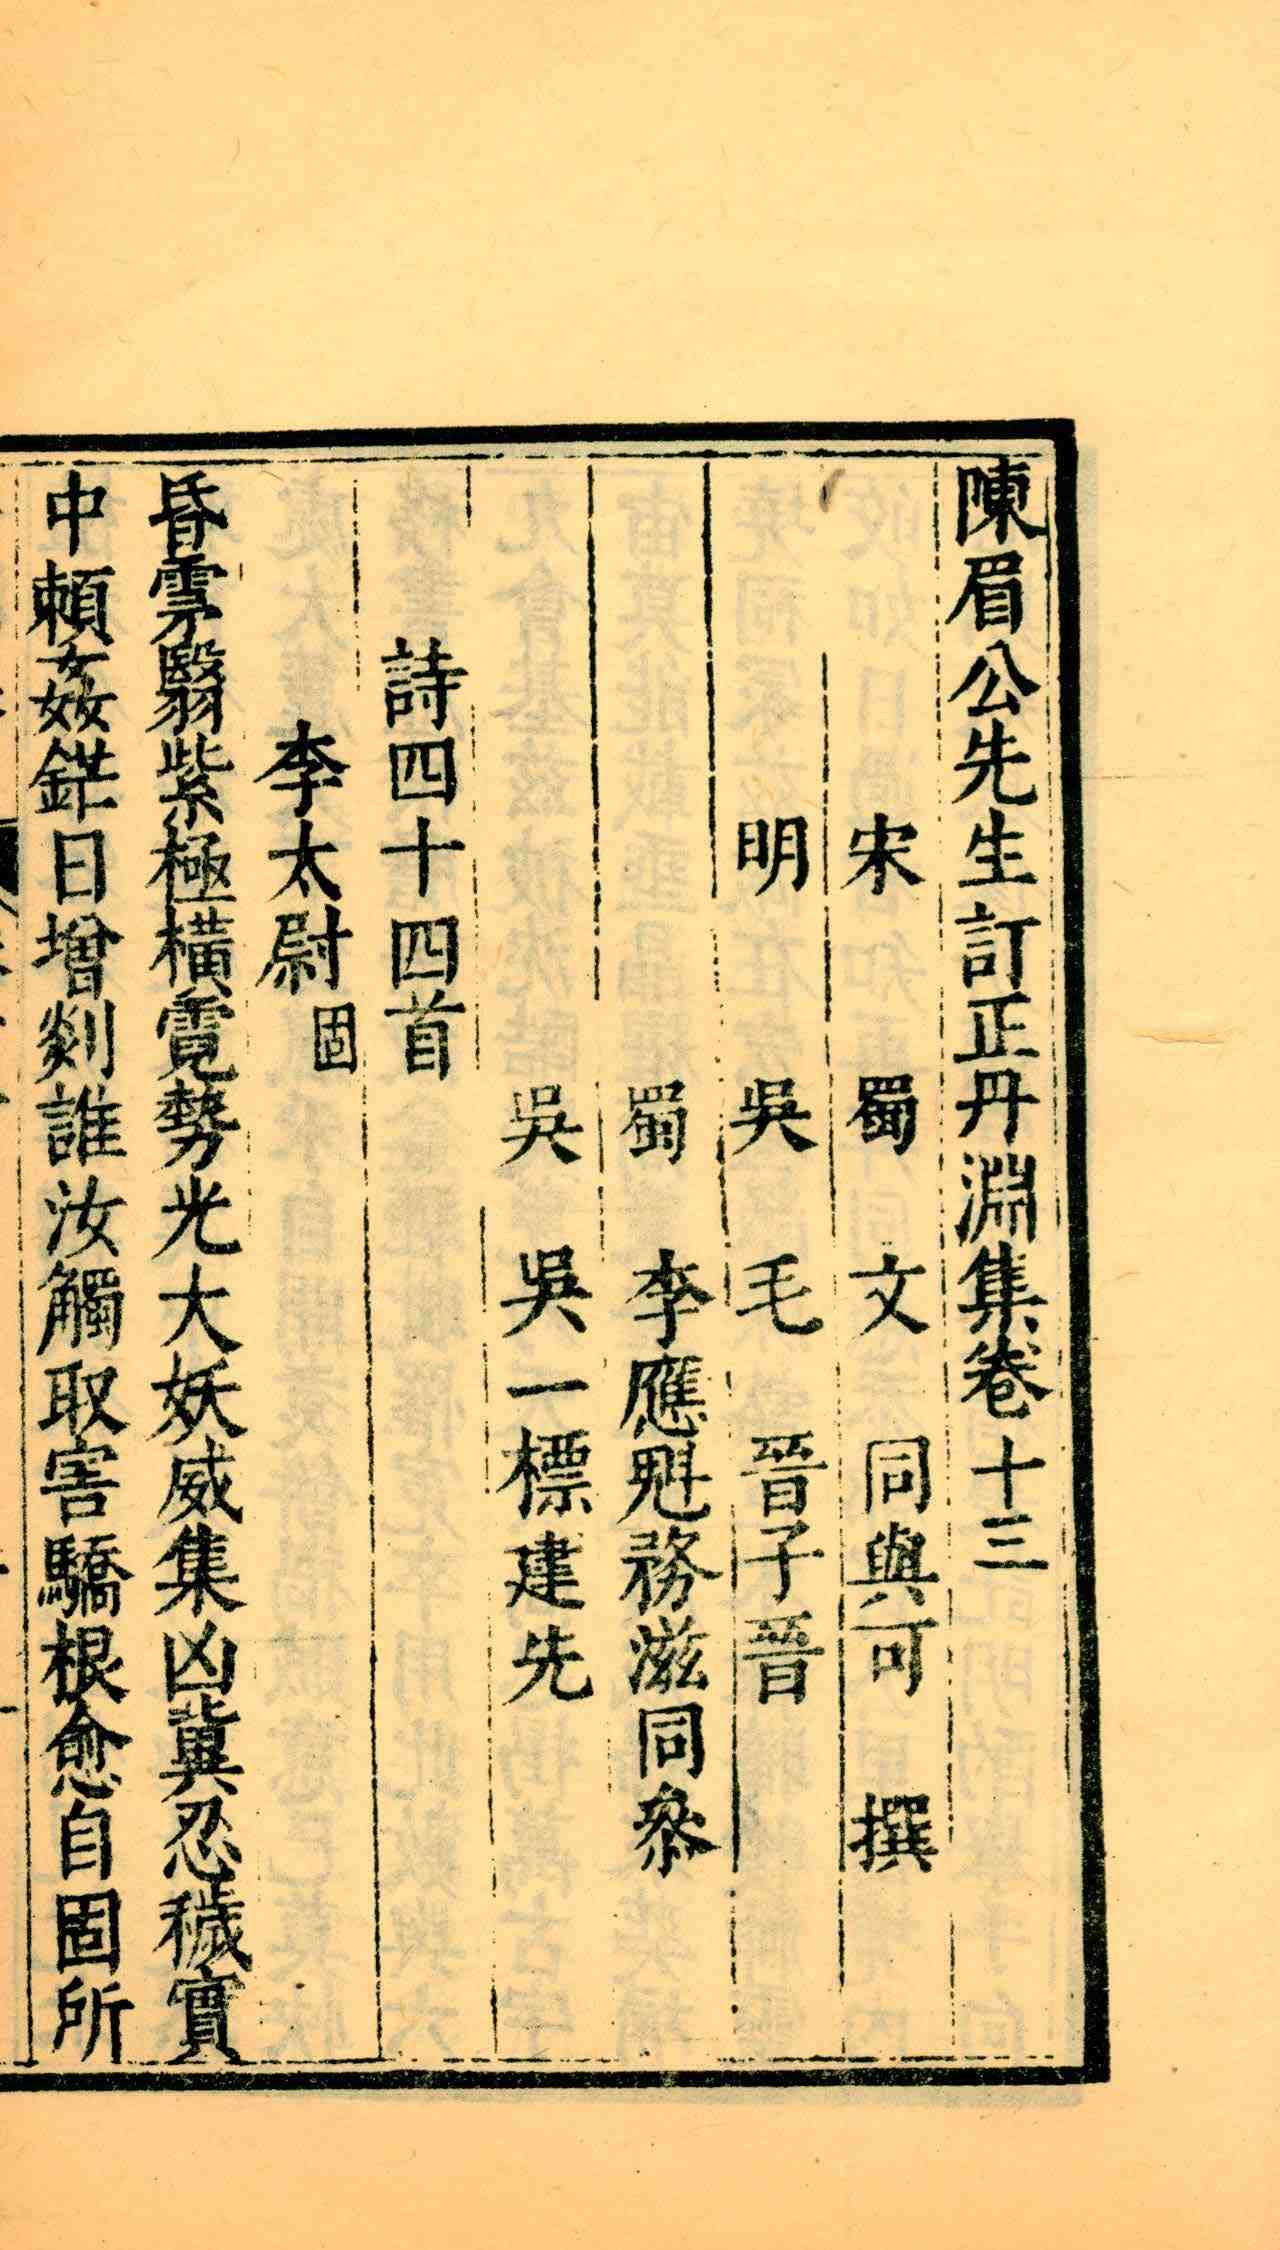 陳眉公先生訂正丹淵集卷十三
宋 蜀 文 同與可 撰
明 吳 毛 晉子晉
蜀 李應魁務滋同叅
吳 吳一標建先
詩四十四首
李太尉固
昏雺翳紫極橫霓勢光大妖威集凶冀忍穢實
中頼姦錐日增剡誰汝觸取害驕根愈自固所